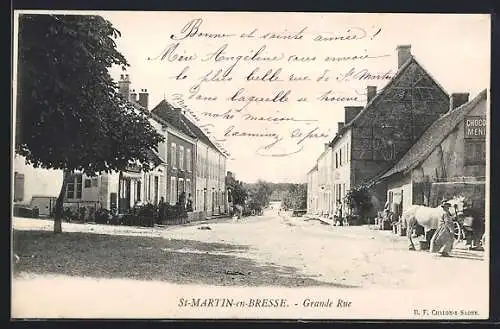 Bonne et sainte année !
Mère Angéline vous envoie
la plus belle rue de St Martin
Dans laquelle se trouve
notre maison
Examinez
CHOCO
MENI
St-MARTIN-en-BRESSE. - Grande Rue
B. F. CHALON-S-SAONE.